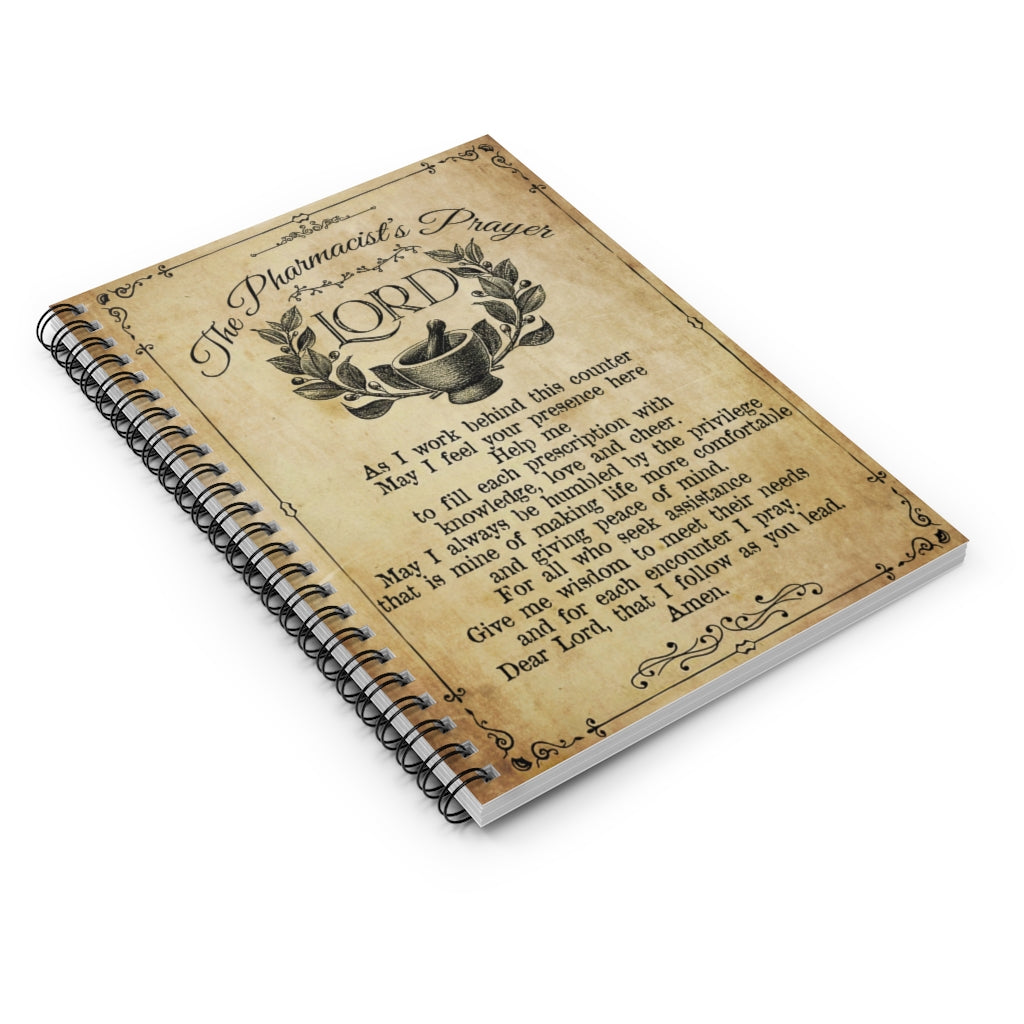 The Pharmacist's Prayer
LORD
As I work behind this counter
May I feel your presence here
Help me
to fill each prescription with
knowledge, love and cheer.
May I always be humbled by the privilege
that is mine of making life more comfortable
and giving peace of mind.
For all who seek assistance
Give me wisdom to meet their needs
and for each encounter I pray.
Dear Lord, that I follow as you lead.
Amen.